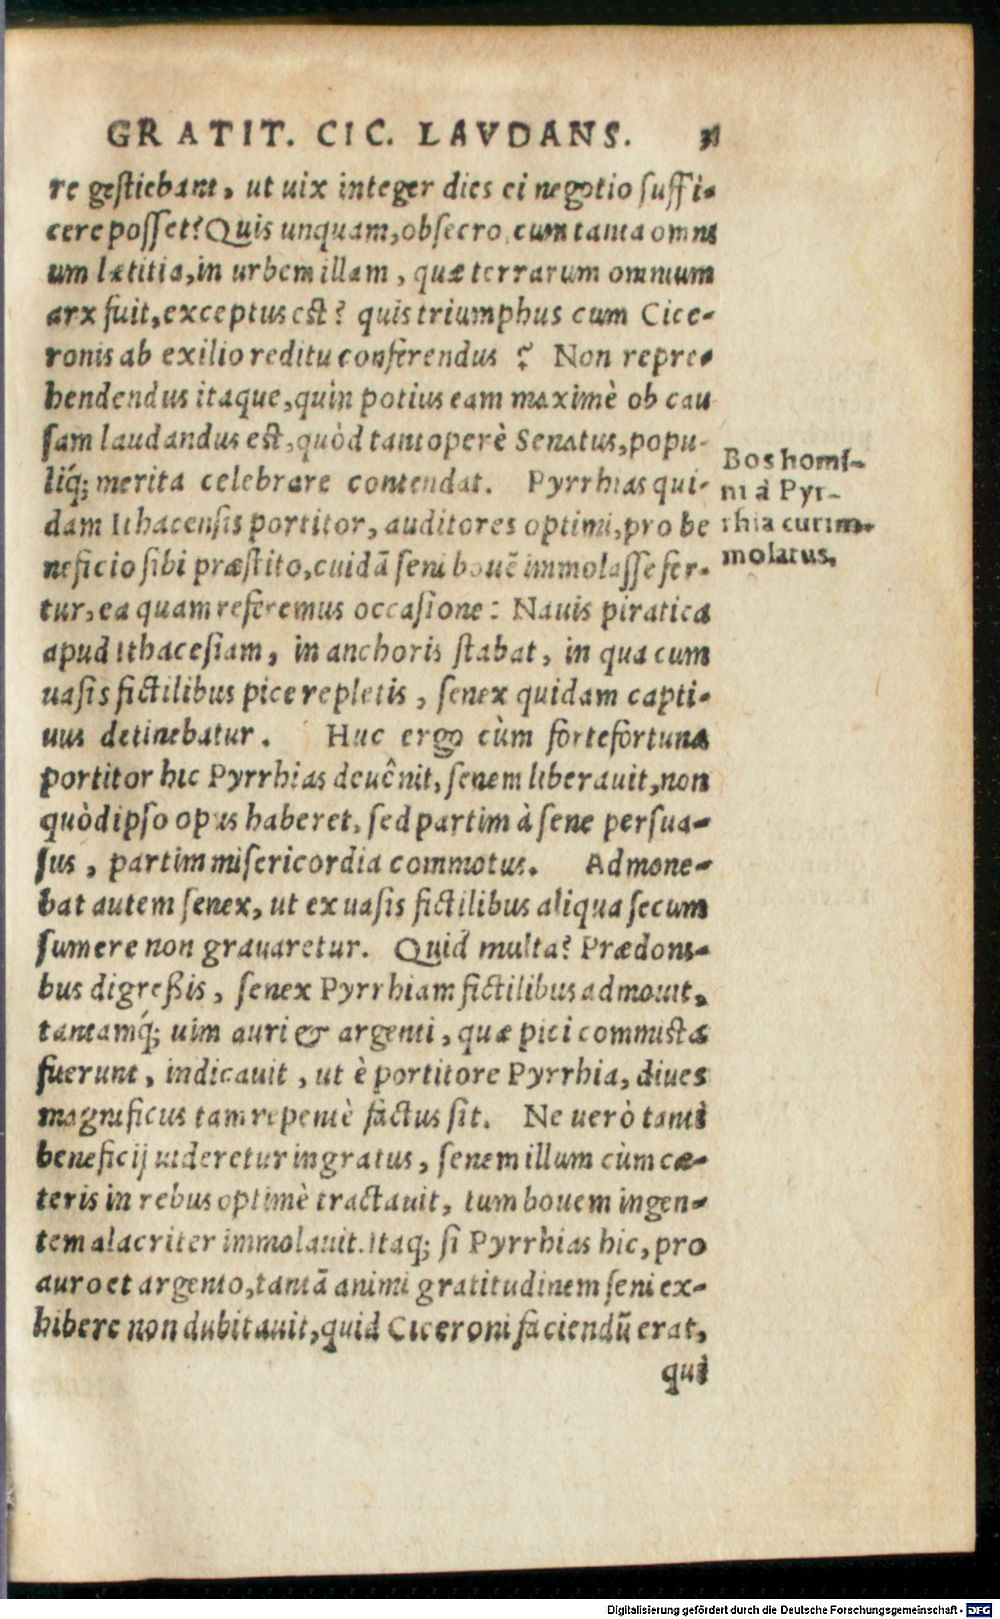 GRATIT. CIC. LAVDANS.
re gestiebant, ut uix integer dies ei negotio suffi-
cere posset? Quis unquam, obsecro, cum tanta omni
um lætitia, in urbem illam, quæ terrarum omnium
arx fuit, exceptus est? quis triumphus cum Cice-
ronis ab exilio reditu conferendus? Non repre-
hendendus itaque, quin potius eam maximè ob cau
sam laudandus est, quòd tantoperè Senatus, popu-
liq́; merita celebrare contendat. Pyrrhias qui-
dam Ithacensis portitor, auditores optimi, pro be
neficio sibi præstito, cuidā seni bouē immolasse fer-
tur, ea quam referemus occasione: Nauis piratica
apud Ithacesiam, in anchoris stabat, in qua cum
uasis fictilibus pice repletis, senex quidam capti-
uus detinebatur. Huc ergo cùm fortefortuna
portitor hic Pyrrhias deuênit, senem liberauit, non
quòd ipso opus haberet, sed partim à sene persua-
sus, partim misericordia commotus. Admone-
bat autem senex, ut ex uasis fictilibus aliqua secum
sumere non grauaretur. Quid multa? Prædoni-
bus digreßis, senex Pyrrhiam fictilibus admouit,
tantamq́; uim auri & argenti, quæ pici commista
fuerunt, indicauit, ut è portitore Pyrrhia, diues
magnificus tam repentè factus sit. Ne uerò tanti
beneficij uideretur ingratus, senem illum cùm cæ-
teris in rebus optimè tractauit, tum bouem ingen-
tem alacriter immolauit. Itaq; si Pyrrhias hic, pro
auro et argento, tantā animi gratitudinem seni ex-
hibere non dubitauit, quid Ciceroni faciendū erat,
qui
Bos homi-
ni à Pyr-
rhia cur im-
molatus.
Digitalisierung gefördert durch die Deutsche Forschungsgemeinschaft - DFG